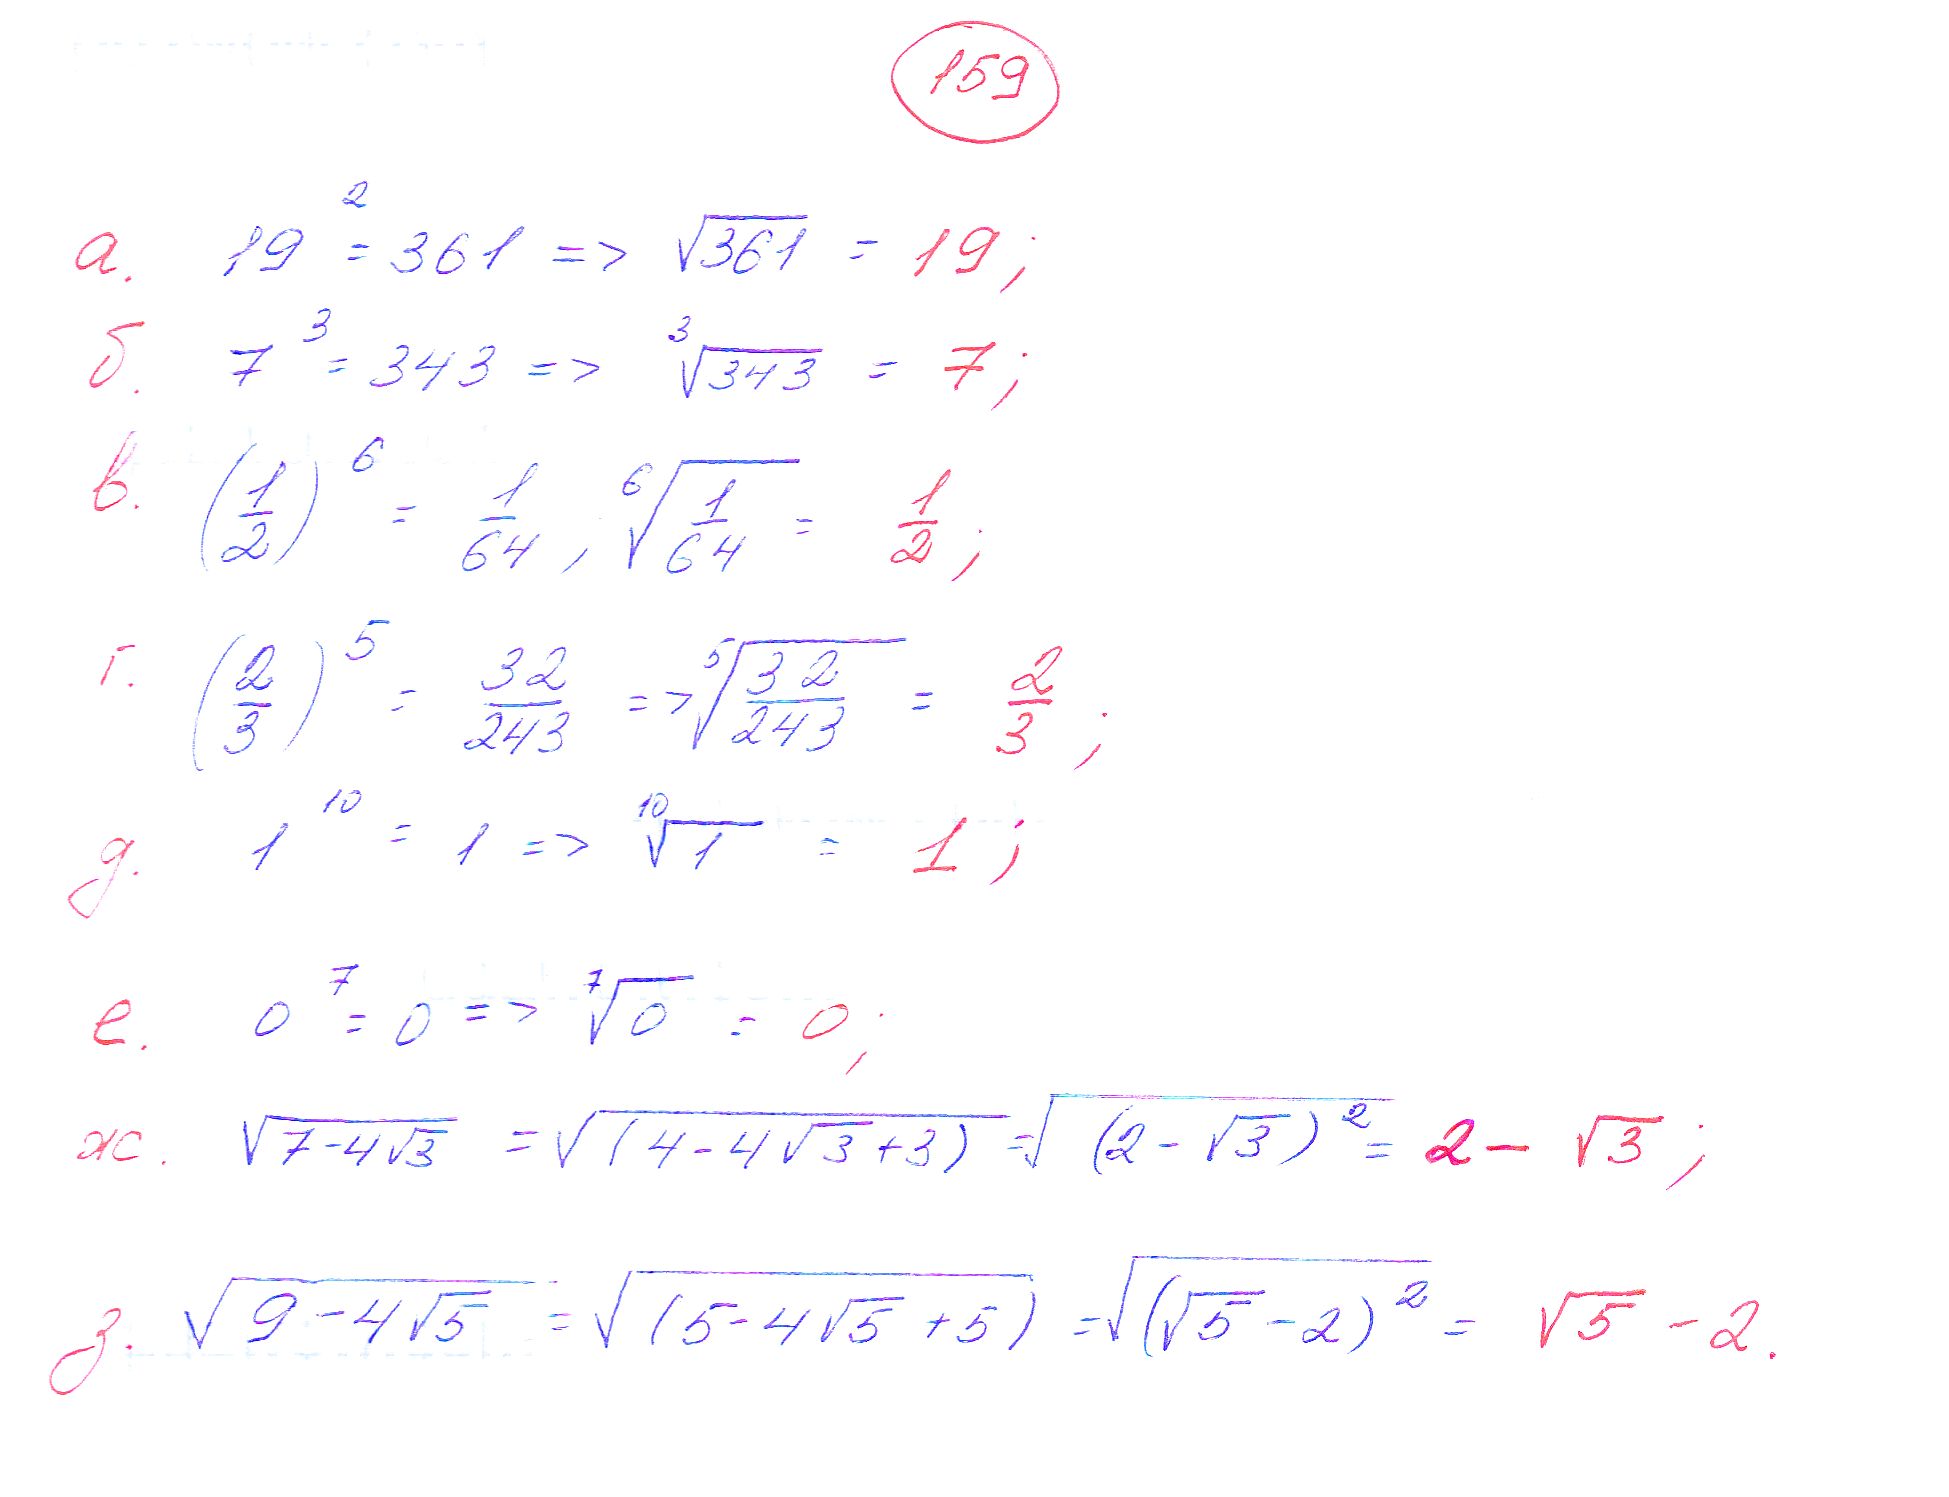 159
а. 19² = 361 => √361 = 19;
б. 7³ = 343 => ³√343 = 7;
в. (1/2)⁶ = 1/64, ⁶√(1/64) = 1/2;
г. (2/3)⁵ = 32/243 => ⁵√(32/243) = 2/3;
д. 1¹⁰ = 1 => ¹⁰√1 = 1;
е. 0⁷ = 0 => ⁷√0 = 0;
ж. √(7-4√3) = √((4-4√3+3)) = √((2-√3)²) = 2-√3;
з. √(9-4√5) = √((5-4√5+5)) = √((√5-2)²) = √5-2.